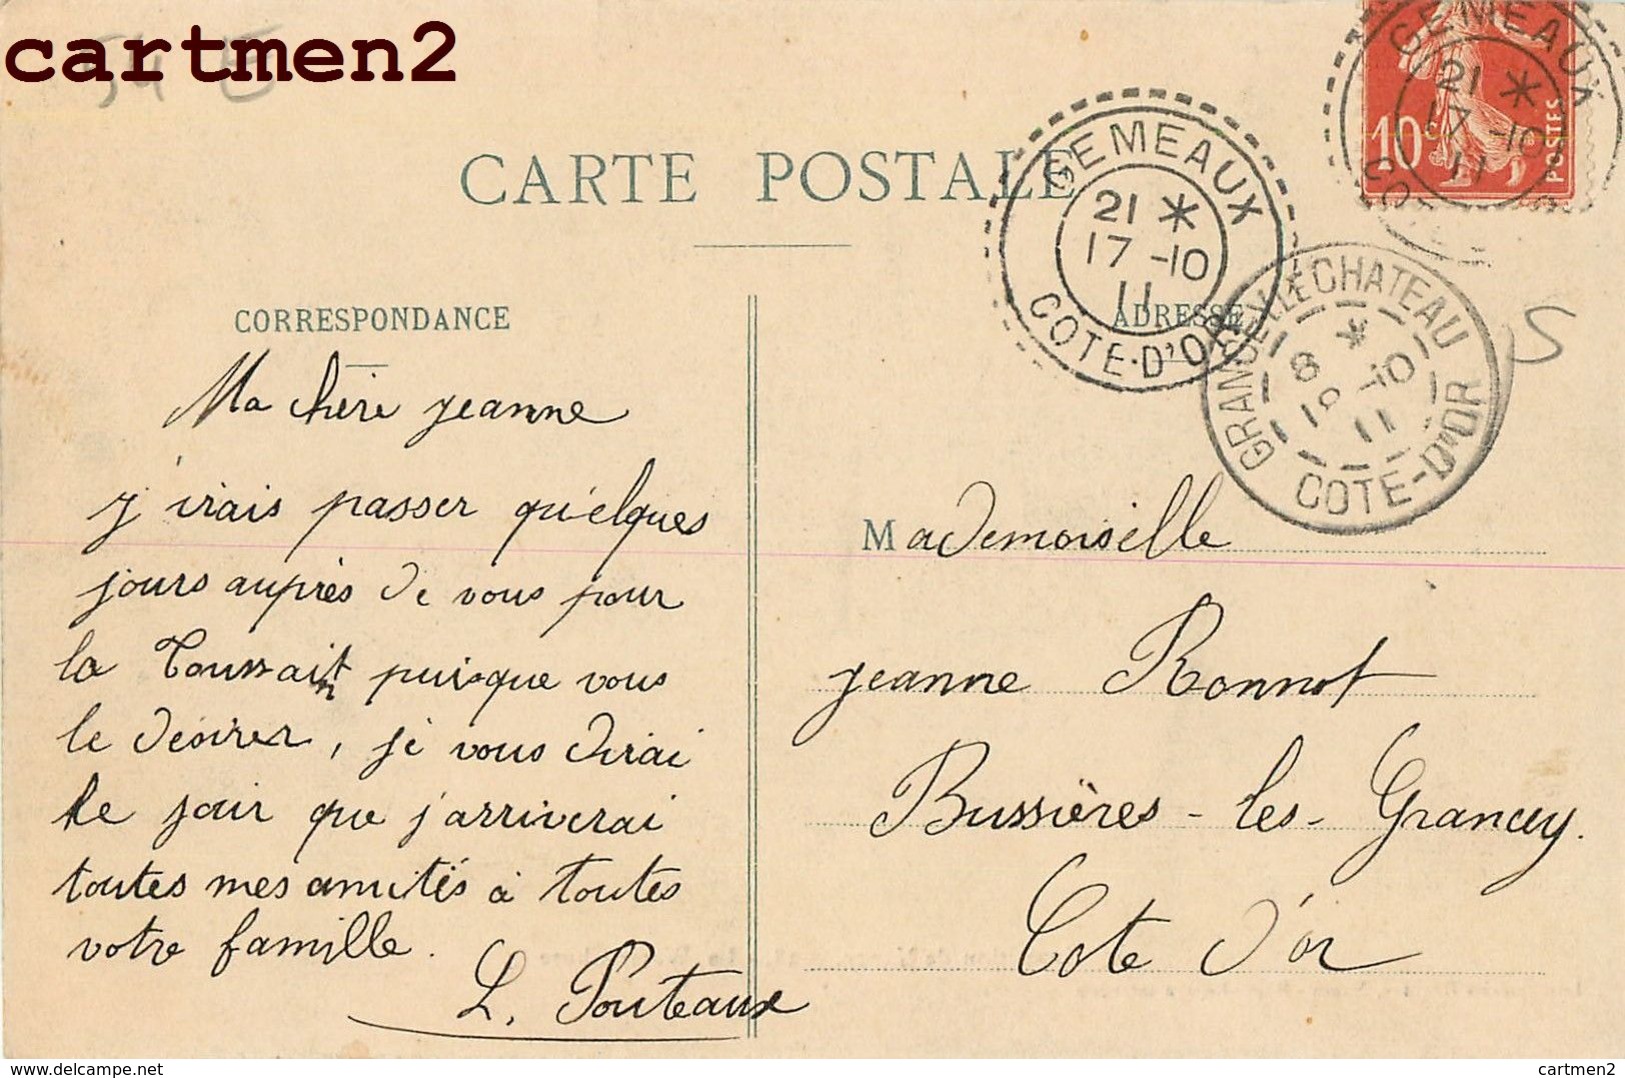 cartmen2
54 E
CARTE POSTALE
GEMEAUX
21 *
17 -10
11
COTE-D'OR
GEMEAUX
21 *
17 -10
11
10c
POSTES
GRANCEY LE CHATEAU
8 *
18 -10
11
COTE-D'OR
S
CORRESPONDANCE
Ma chère jeanne
j'irais passer quelques
jours auprès de vous pour
la Toussaint puisque vous
le désirer, je vous dirai
le jour que j'arriverai
toutes mes amitiés à toutes
votre famille.
L. Pouteaux
ADRESSE
Mademoiselle
jeanne Ronnot
Bussières-les-Grancey.
Cote d'or
www.delcampe.net
cartmen2